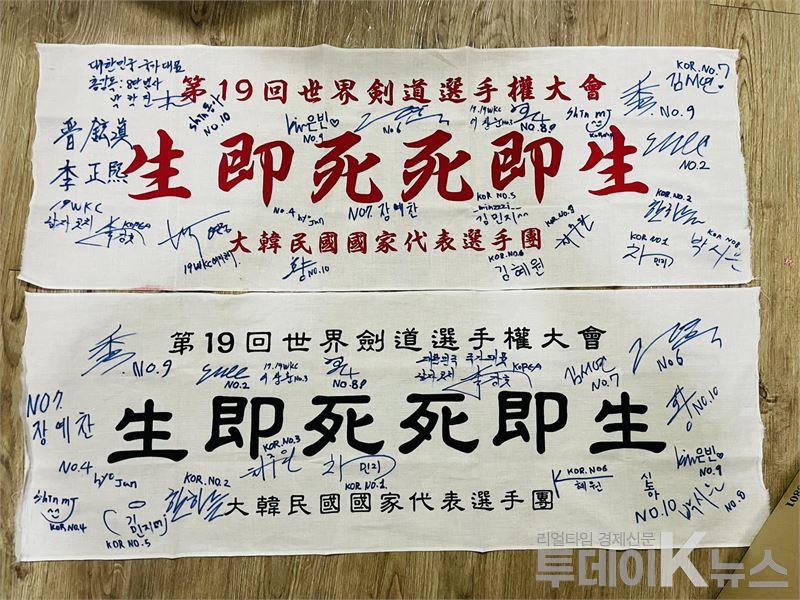 대한민국 국가대표
第19回世界劍道選手權大會
KOR.NO.7
김서연
NO.10
은빈♡
NO.9
No6
17.19WKC
No.8
shin mJ
NO.9
NO.2
生即死死即生
李正熙
19WKC
KOREA
NO.4 hyo Jun
NO7. 장예찬
KOR NO.5
_minzzzi_
김민지^^
KOR.NO.2
KOR.NO1
박시은
大韓民國國家代表選手團
NO.10
KOR.NO6
김혜원
第19回世界劍道選手權大會
NO.9
NO.2
17.19WKC
NO.8
대한민국 국가대표
KOREA
김서연
NO.7
No6
NO7.
장예찬
生即死死即生
NO.10
은빈♡
NO.9
NO.4
hyo Jun
KOR.NO.3
KOR.NO.2
KOR NO.1
KOR.NO6
혜원
shin mJ
KOR.NO4
김민지
KOR NO.5
大韓民國國家代表選手團
NO.10
박시은
NO.8
리얼타임 경제신문
투데이K뉴스